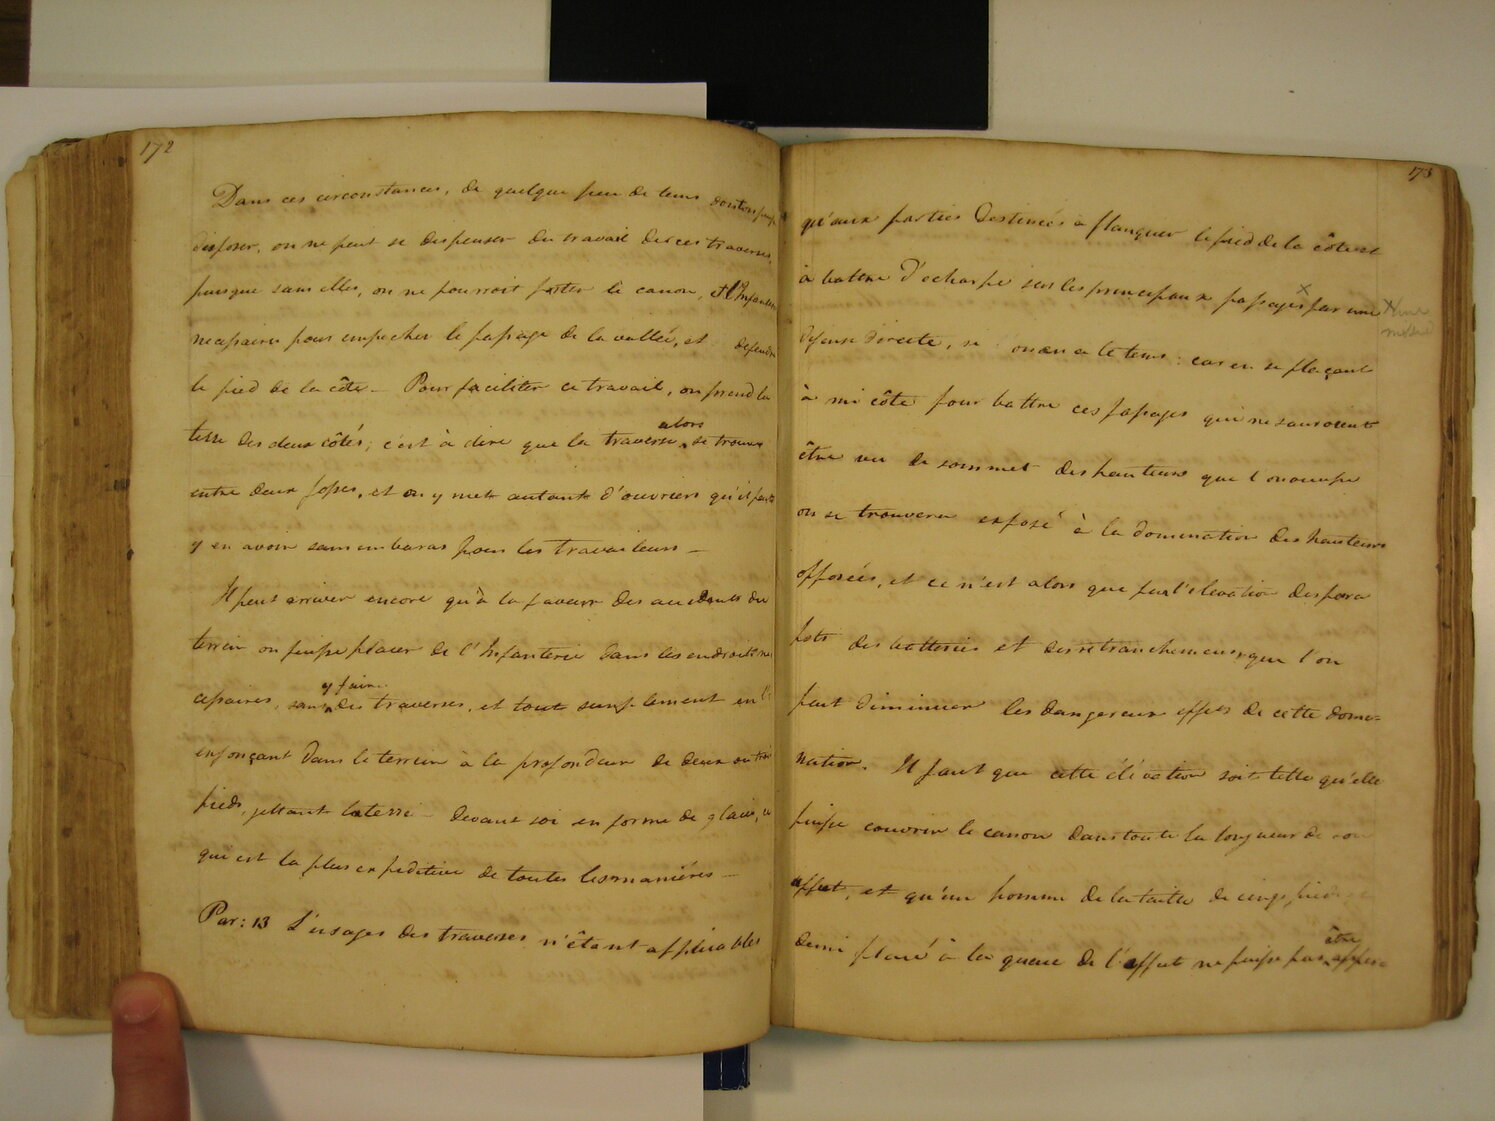 172
Dans ces circonstances, de quelque peu de tems dont on puisse
disposer, on ne peut se dispenser du travail de ces traverses,
puisque sans elles, on ne pourroit porter le canon, et l'Infanterie
necessaires pour empecher le passage de la vallée, et defendre
le pied de la côte — Pour faciliter ce travail, on prend la
terre des deux côtés; c'est à dire que la traverse alors se trouve
entre deux fosses, et on y met autant d'ouvriers qu'il peut
y en avoir sans embaras pour les travaileurs —
Il peut arriver encore qu'à la faveur des accidents du
terrein on puisse placer de l'Infanterie dans les endroits ne
cessaires, sans y faire des traverses, et tout simplement en l'
enfonçant dans le terrein à la profondeur de deux ou trois
pieds, jettant la terre devant soi en forme de glacis, ce
qui est la plus expeditive de toutes les maniéres —
Par: 13 L'usages des traverses n'étant applicables
173
qu'aux parties destineés à flanquer le pied de la côte et
à battre d'echarpe sur les principaux passages x par une x une
defense directe, si on en a le tems: car en se plaçant
à mi côte pour battre ces passages qui ne sauroient
être vu de sommet des hauteurs que l'on occupe
on se trouvera exposé à la domination des hauteurs
opposées, et ce n'est alors que par l'elevation des para
pets des batteries et des retranchemens, que l'on
peut diminuer les dangereux effets de cette domi=
nation. Il faut que cette élevation soit telle qu'elle
puisse couvrir le canon dans toute la longueur de son
affut, et qu'un homme de la taille de cinqs pieds
demi placé à la queue de l'affut ne puisse pas être apper=